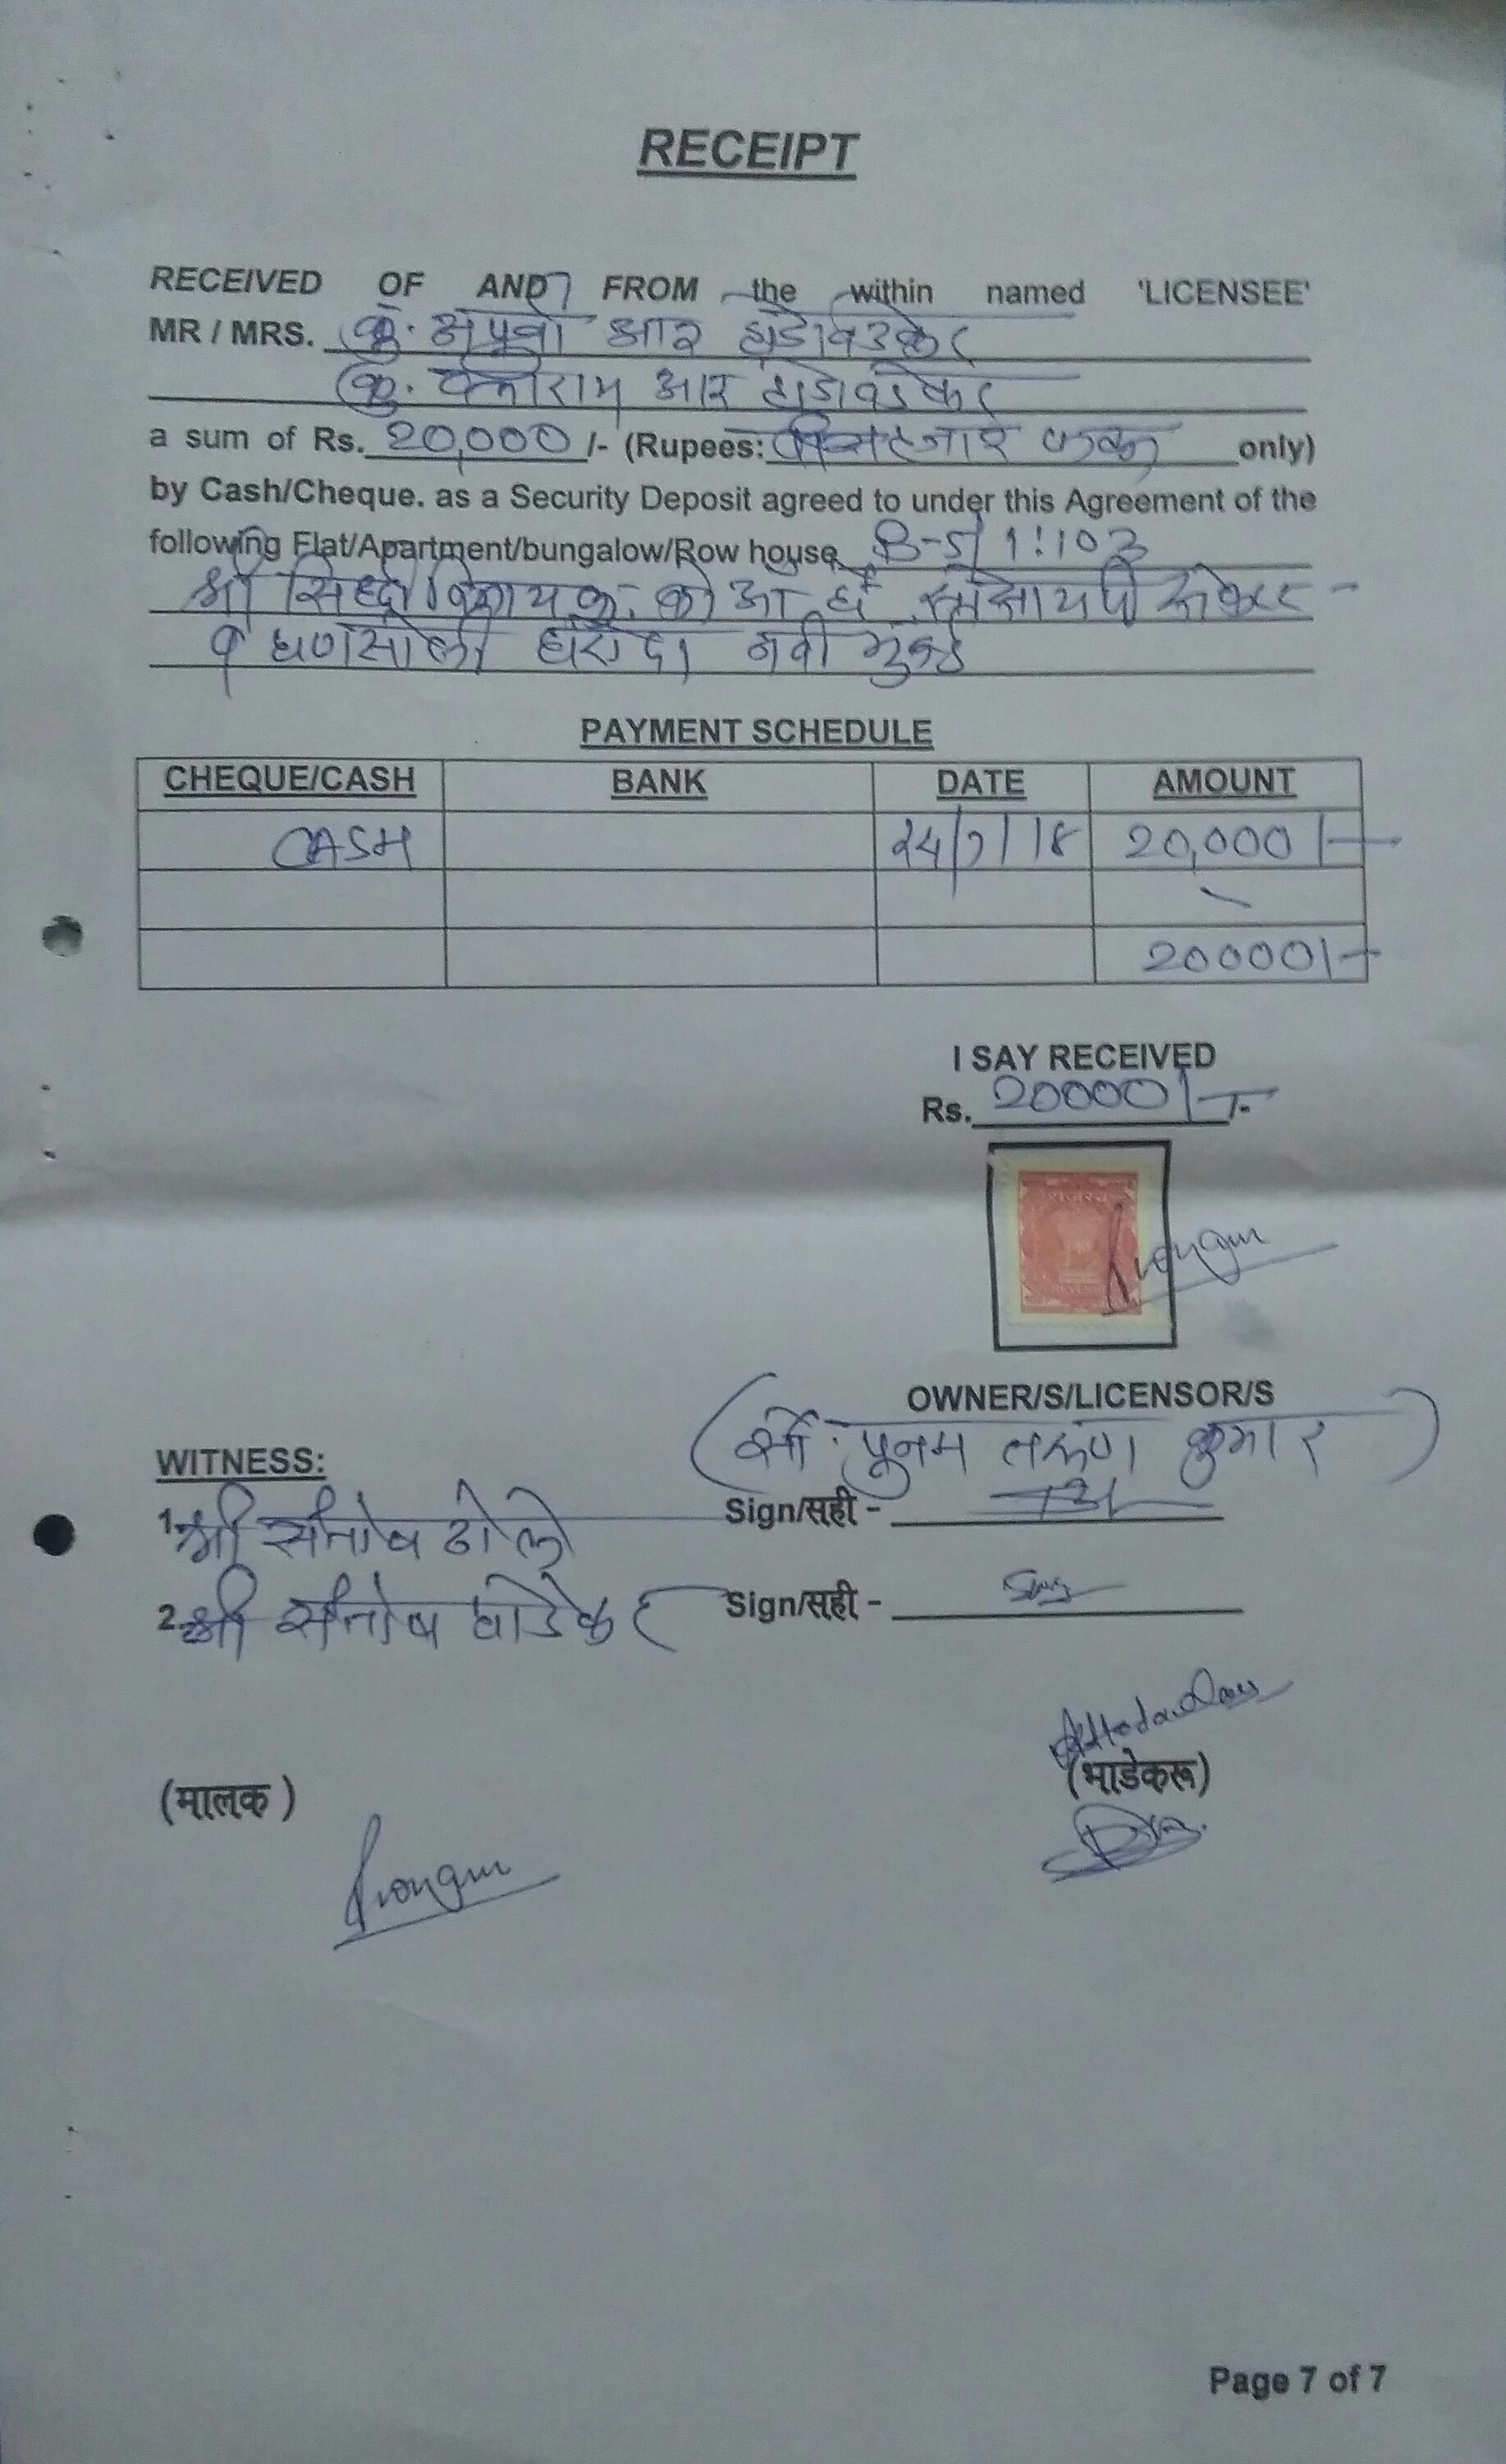 RECEIPT
RECEIVED OF AND FROM the within named 'LICENSEE'
MR / MRS. कु. अपूर्वा आर हाडावडेकर
कु. आर हाडावडेकर
a sum of Rs. 20,000 /- (Rupees: विस हजार फक्त only)
by Cash/Cheque. as a Security Deposit agreed to under this Agreement of the
following Flat/Apartment/bungalow/Row house B-5/1:103
श्री सिध्दी विनायक को
घणसोली घरोंदा नवी मुंबई
PAYMENT SCHEDULE
CHEQUE/CASH BANK DATE AMOUNT
CASH 24/7/18 20,000/-
20000/-
I SAY RECEIVED
Rs. 20000/- /-
OWNER/S/LICENSOR/S
(सौ. पूनम तरूण कुमार)
WITNESS:
1. श्री संतोष ढोले Sign/सही -
2. श्री संतोष घाडेकर Sign/सही -
(मालक )
(भाडेकरू)
Page 7 of 7